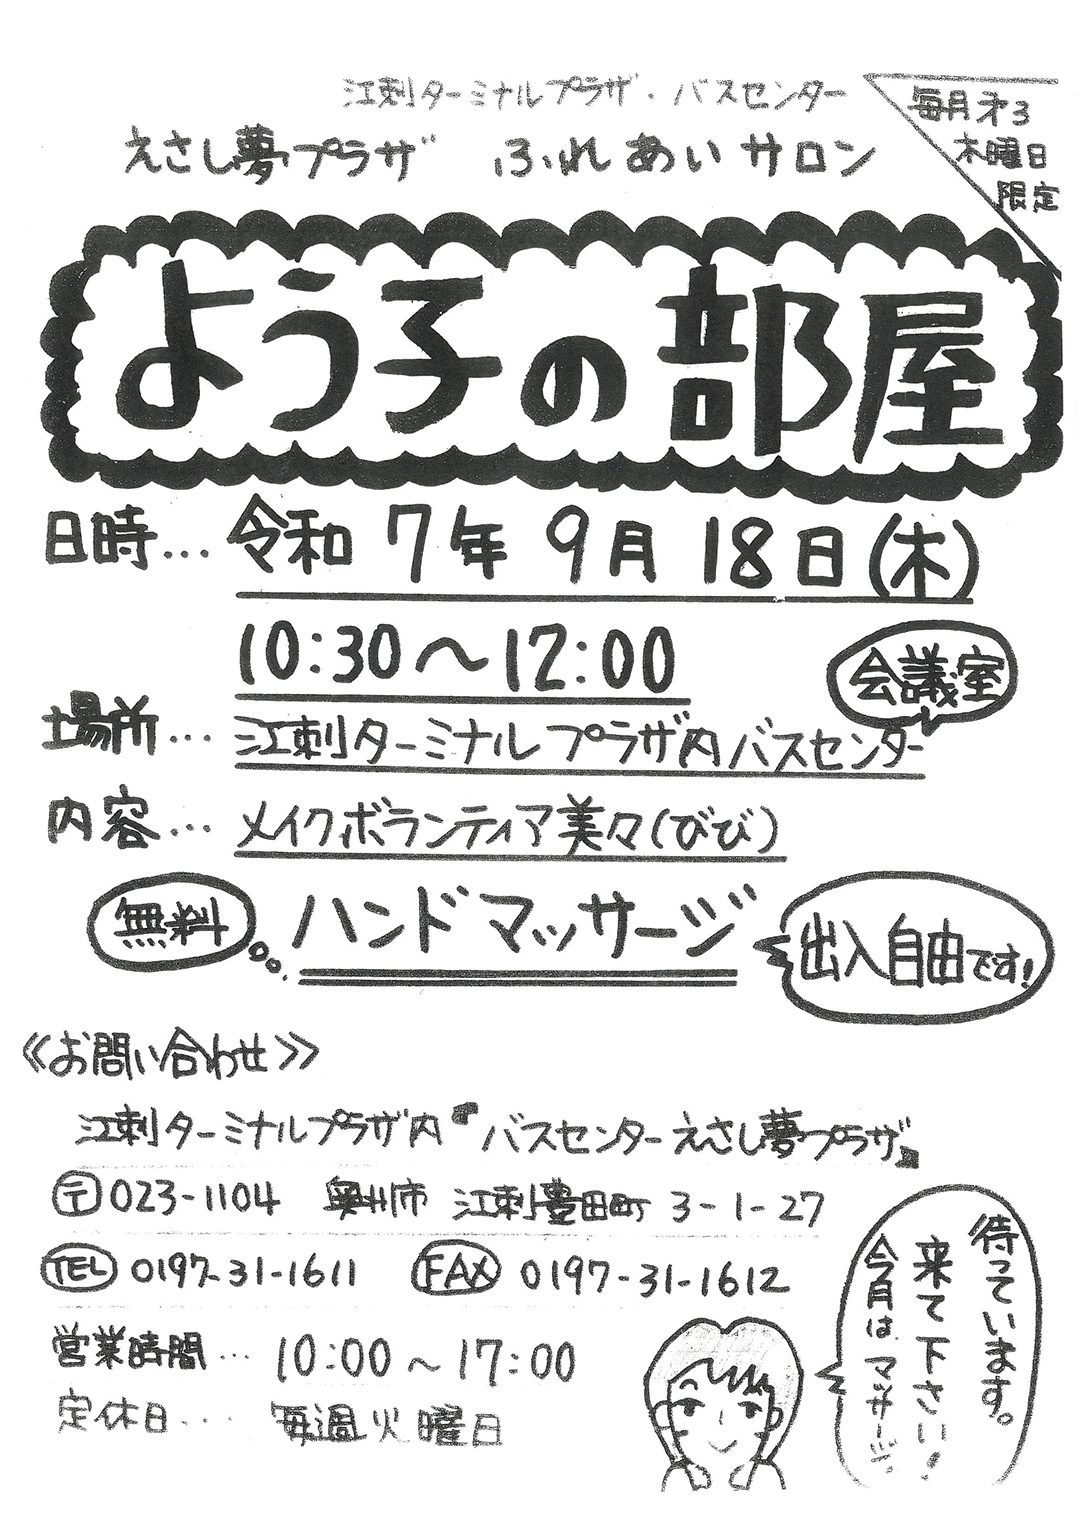 江刺ターミナルプラザ・バスセンター
えさし夢プラザ ふれあいサロン
毎月才3
木曜日
限定
よう子の部屋
日時… 令和7年9月18日(木)
10:30～12:00
会議室
場所… 江刺ターミナルプラザ内バスセンター
内容… メイクボランティア美々(びび)
無料
ハンドマッサージ
出入自由です!
≪お問い合わせ≫
江刺ターミナルプラザ内『バスセンターえさし夢プラザ』
〒023-1104 奥州市 江刺豊田町 3-1-27
TEL 0197-31-1611 FAX 0197-31-1612
営業時間… 10:00～17:00
定休日… 毎週火曜日
今月はマッサージ。
来て下さい!
待っています。